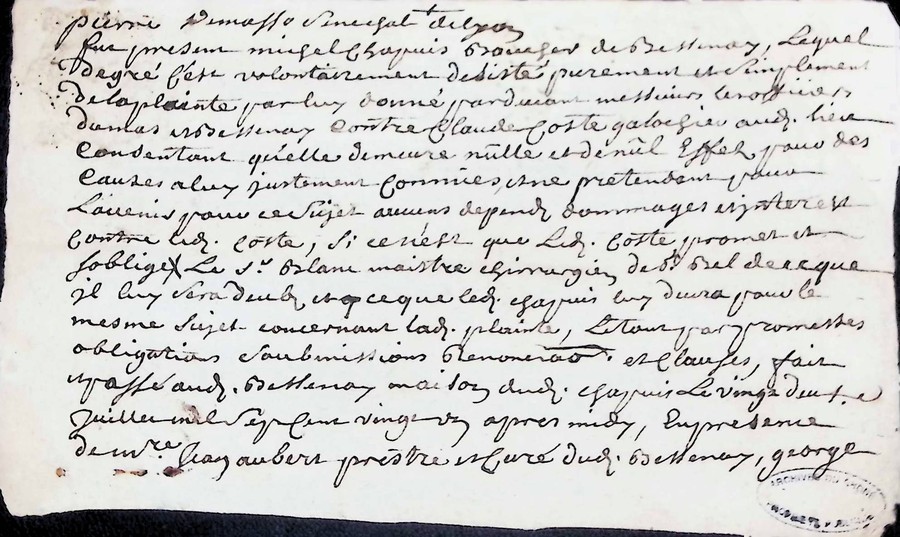 pierre Demasso Senechal de lyon
fut present michel Chapuis Boulanger de Bessenay, Lequel
degré C'est volontairement desisté purement et Simplement
dela plainte par luy donné pardevant messieurs les officiers
dudit Bessenay Contre Claude Coste galochier aud. lieu
Consentant qu'elle demeure nulle et de nul Effet pour des
Causes a luy justement Connües, et ne pretendant pour
L'avenir pour ce Sujet aucuns depend dommages et interest
contre led. Coste, Si ce n'est que Led. Coste promet et
soblige Le Sr. Blanc maistre chirurgien de St. Bel de ce que
il luy sera deub, et ce que led. chapuis luy devra pour le
mesme Sujet concernant lad. plainte, Le tout par promesses
obligations Soubmissions Renonciaõ. et Clauses, fait
et passé aud. Bessenay maison dud. chapuis Le vingt deux e
Juillet mil Sept Cent vingt un apres midy, En presence
de mre Jean aubert prestre et Curé dud. Bessenay, george
ARCHIVES DU RHONE